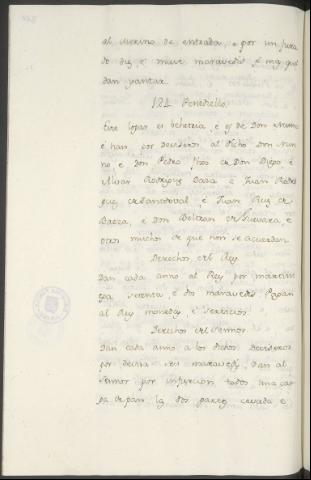 al merino de entrada, e por un jura
de diez e nueve maravedis e mas quel
dan yantar.
124 Penediello
Este logar es behetria, e es de Don Nunno
e han por deviseros al dicho Don Nun
no, e Don Pedro fijos de Don Diego e
Alvar Rodriguez Daza e Juan Rodri
guez de Sandoval e Juan Ruiz de
Baeza, e Don Beltran de Guevara, e
otros muchos de que non se acuerdan
Derechos del Rey
Dan cada anno al Rey por martini
ega setenta, e dos maravedis Pagan
al Rey monedas e servicios.
Derechos del Sennor
Dan cada anno a los dichos Deviseros
por devisa seis maravedis, dan al
Sennor por infurcion todos una car
ga de pan la dos partes cevada e